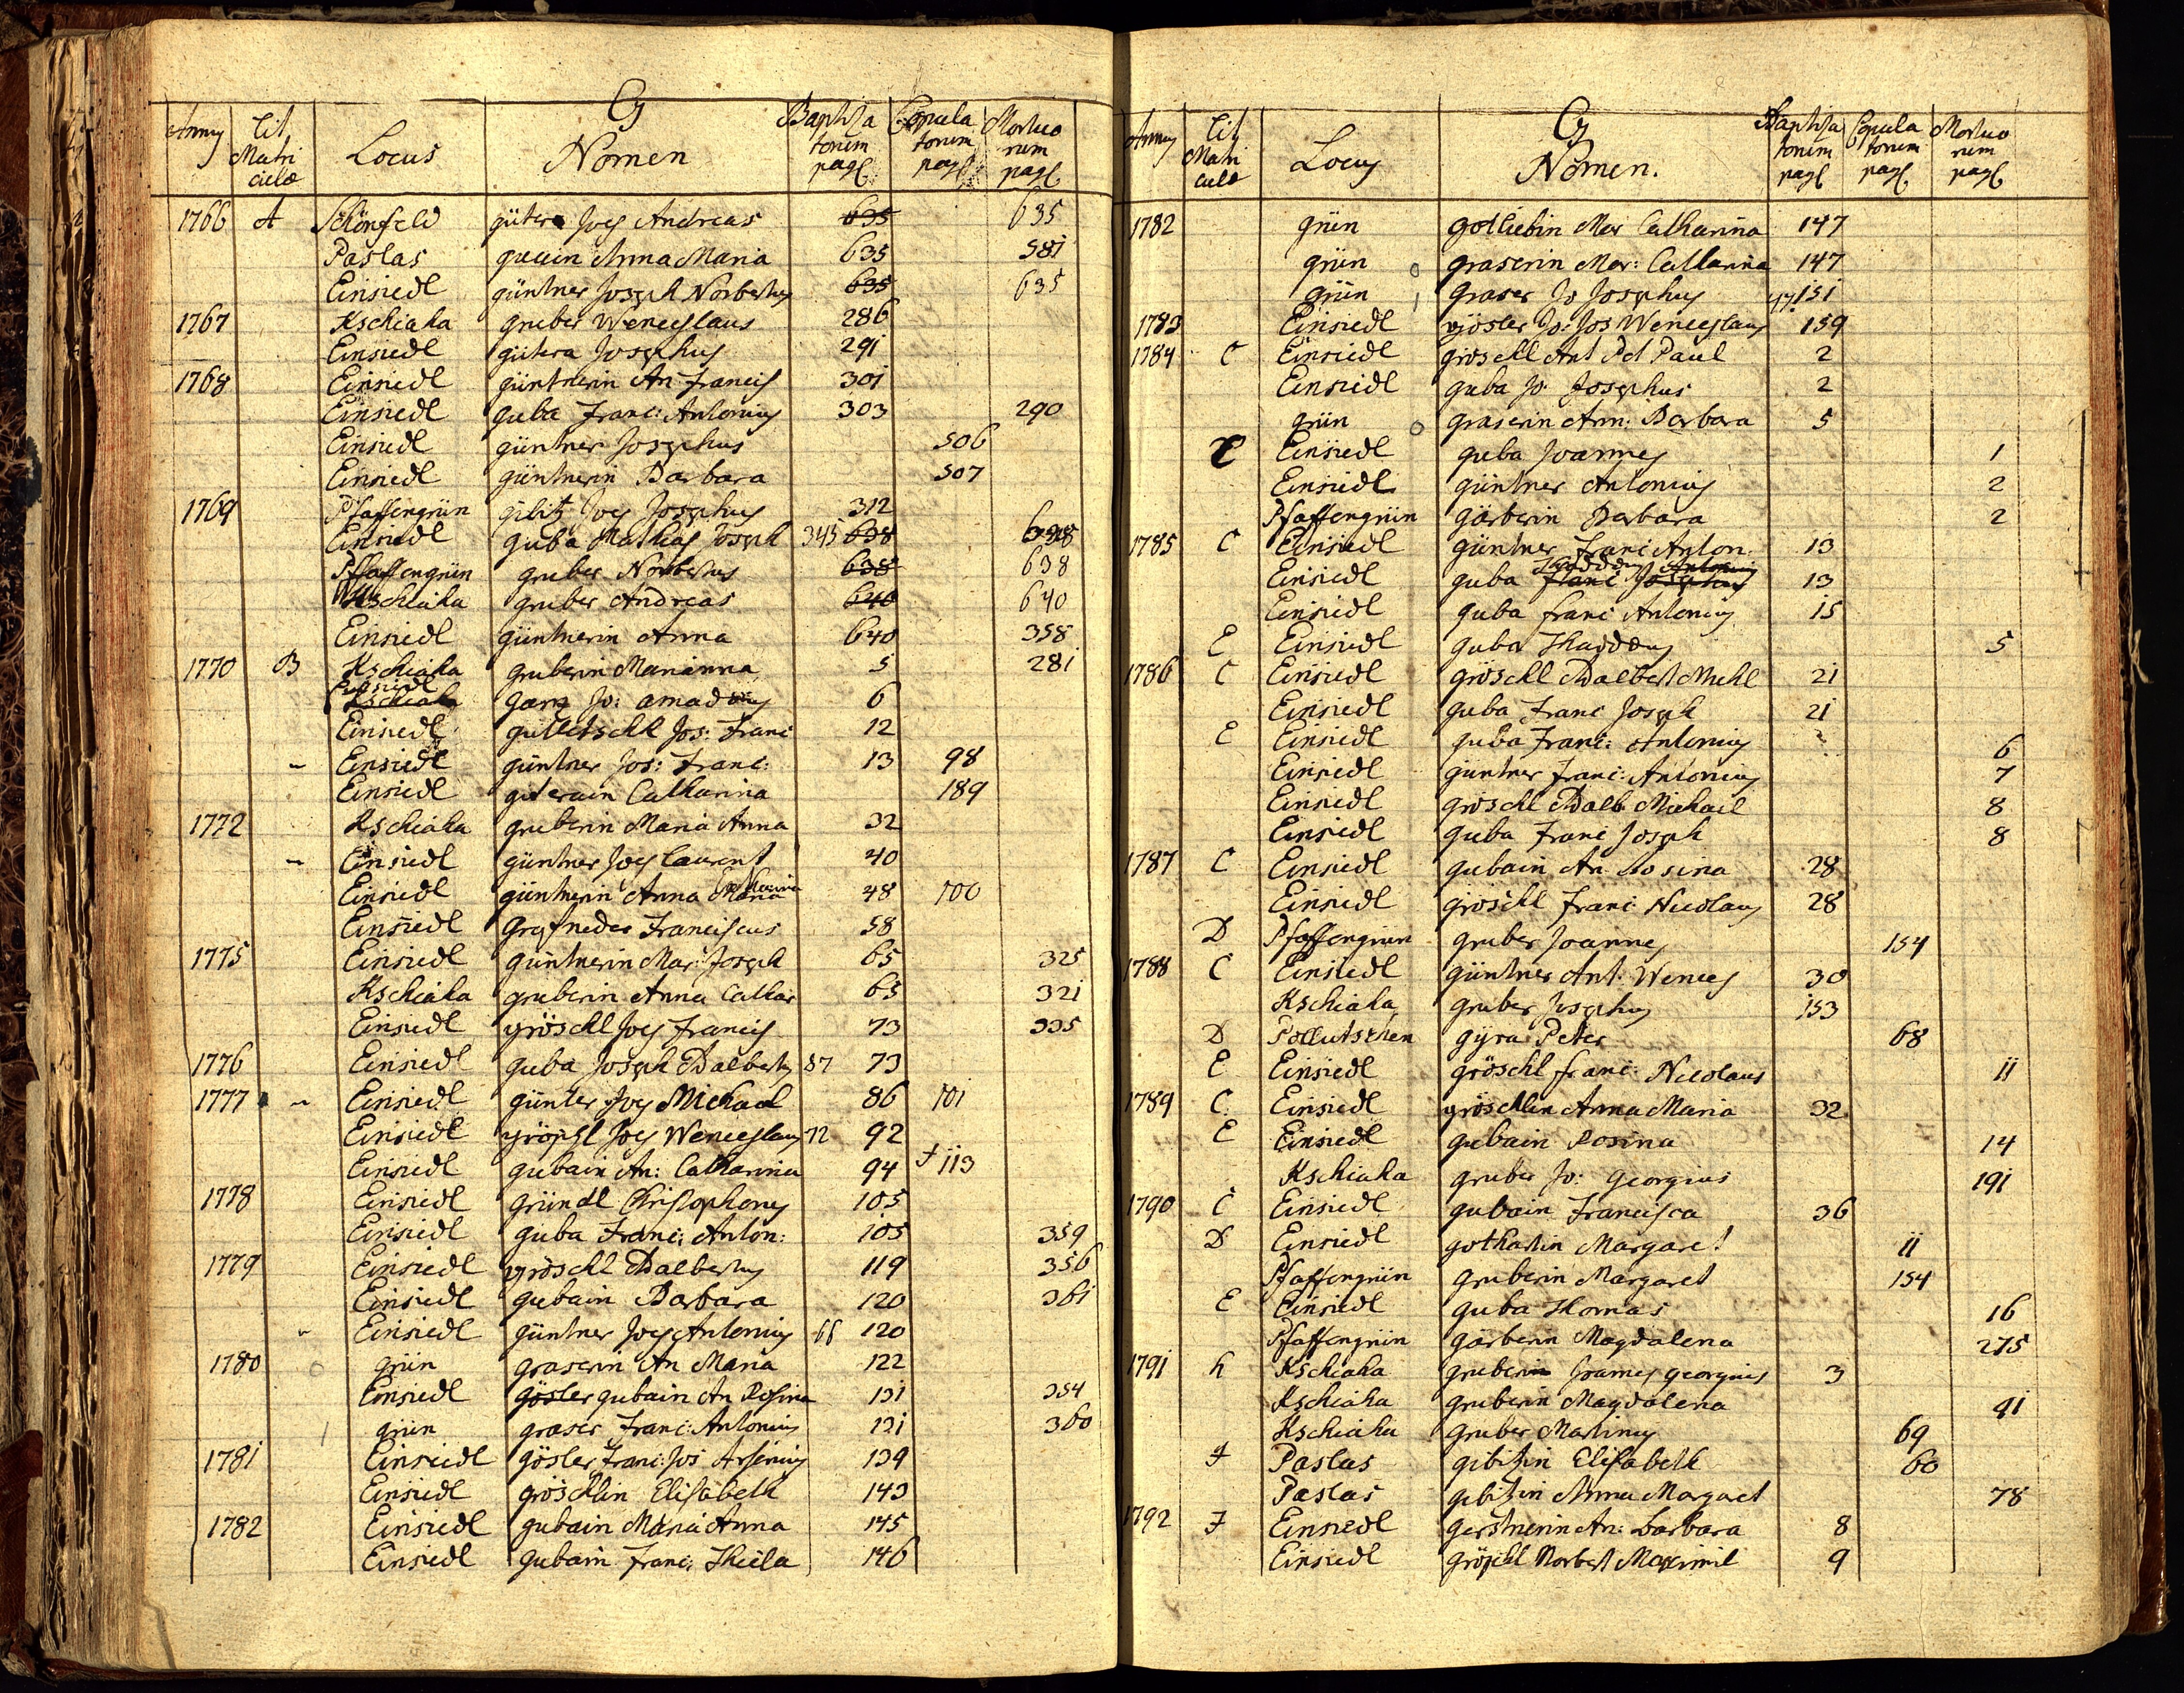 G
Annus Lit. Matriculæ Locus Nomen Baptisatorum pag. Copulatorum pag. Mortuorum pag.
1766 A Schönfeld gütera Joes Andreas 635 635
Paslas Anna Maria 635 581
Einsiedl güntner Joseph Norbertus 635 635
1767 Kschiaha gruber Wenceslaus 286
Einsiedl gütera Josephus 291
1768 Einsiedl güntnerin An Francis 301
Einsiedl guba Franc: Antonius 303 290
Einsiedl güntner Josephus 506
Einsiedl güntnerin Barbara 507
1769 Pfaffengrün gibitz Joes Josephus 312
Einsiedl guba Mathias Joseph 345 638 638
Pfaffengrün gruber Norbertus 638 638
Kschiaha gruber Andreas 640 640
Einsiedl güntnerin Anna 640 358
1770 B Kschiaha gruberin Marianna 5 281
Einsiedl Kschiaha Jo: 6
Einsiedl Jos: Franc 12
Einsiedl güntner Jos: Franc: 13 98
Einsiedl Catharina 189
1772 Kschiaha gruberin Maria Anna 32
Einsiedl güntner Joes Laurent 40
Einsiedl güntnerin Anna Maria 48 100
Einsiedl Franciscus 58
1775 Einsiedl güntnerin Mar: Joseph 65 325
Kschiaha gruberin Anna Cathar 65 321
Einsiedl gröschl Joes Francis 73 335
1776 Einsiedl guba Joseph Adalbertus 87 73
1777 Einsiedl günter Joes Michael 86 101
Einsiedl gröschl Joes Wenceslaus 72 92
Einsiedl gubain An: Catharina 94 † 113
1778 Einsiedl gründl Christophorus 105
Einsiedl guba Franc: Anton: 105 359
1779 Einsiedl gröschl Adalbertus 119 356
Einsiedl gubain Barbara 120 361
Einsiedl güntner Joes Antonius 66 120
1780 o grün graserin An Maria 122
Einsiedl gösler gubain An Rosina 131 354
1 grün graser Franc: Antonius 131 360
1781 Einsiedl gösler Franc: Jos Arsenius 139
Einsiedl gröschlin Elisabeth 143
1782 Einsiedl gubain Maria Anna 145
Einsiedl gubain Franc: Thecla 146
G
Annus Lit. Matriculæ Locus Nomen. Baptisatorum pag. Copulatorum pag. Mortuorum pag.
1782 grün gottliebin Mar Catharina 147
grün o graserin Mar: Catharina 147
grün 1 graser Jo Josephus 47. 151
1783 Einsiedl gösler Jo: Jos Wenceslaus 159
1784 C Einsiedl gröschl Ant Pet Paul 2
Einsiedl guba Jo Josephus 2
grün o graserin Ann: Barbara 5
E Einsiedl guba Joannes 1
Einsiedl güntner Antonius 2
Pfaffengrün gärberin Barbara 2
1785 C Einsiedl güntner Franc Anton. 13
Einsiedl guba Franc Josephus Thaddæus Antonius 13
Einsiedl guba Franc Antonius 15
E Einsiedl guba Thaddæus 5
1786 C Einsiedl gröschl Adalbert Michl 21
Einsiedl guba Franc Joseph 21
E Einsiedl guba Franc: Antonius 6
Einsiedl güntner Franc: Antonius 7
Einsiedl gröschl Adalb Michael 8
Einsiedl guba Franc Joseph 8
1787 C Einsiedl gubain An Rosina 28
Einsiedl gröschl Franc Nicolaus 28
D Pfaffengrün gruber Joannes 154
1788 C Einsiedl güntner Ant: Wences 30
Kschiaha gruber Josephus 153
D Pollutschen gyra Peter 68
E Einsiedl gröschl Franc: Nicolaus 11
1789 C. Einsiedl gröschlin Anna Maria 32
E Einsiedl gubain Rosina 14
Kschiaha gruber Jo: Georgius 191
1790 C Einsiedl gubain Francisca 36
D Einsiedl gothartin Margaret 11
Pfaffengrün gruberin Margaret 154
E Einsiedl guba Thomas 16
Pfaffengrün gärberin Magdalena 275
1791 h Kschiaha gruberin Joannes georgius 3
Kschiaha gruberin Magdalena 41
Kschiaha gruber Martinus 69
F Paslas gibitzin Elisabeth 60
Paslas gibitzin Anna Margaret 78
1792 F Einsiedl gerstnerin An: Barbara 8
Einsiedl gröschl Norbert Maximil 9